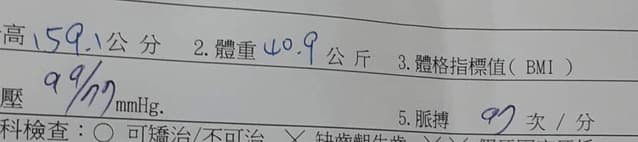 高 159.1 公 分 2.體重 40.9 公 斤 3.體格指標值( BMI )
壓 99/77 mmHg. 5.脈搏 97 次 / 分
科檢查：○ 可矯治/不可治 × 缺齒